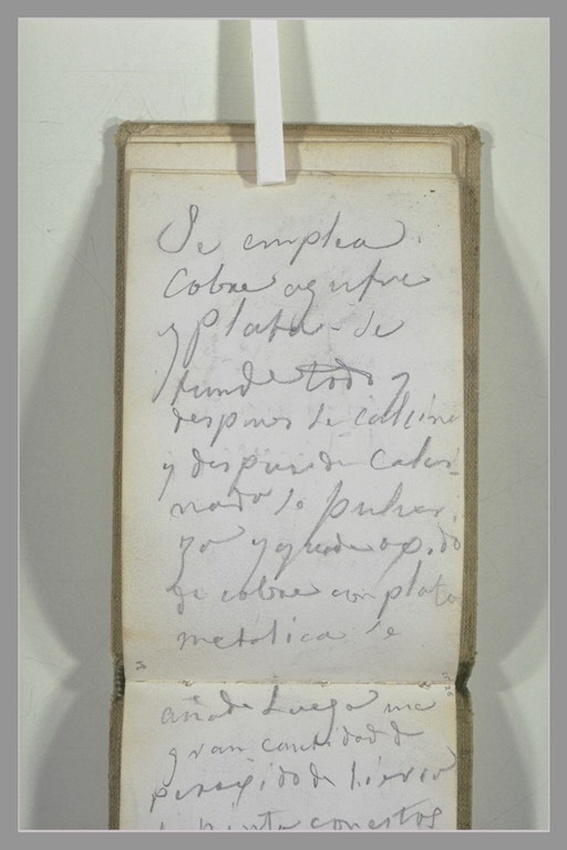 Se emplea
Cobre azufre
y Plata - se
funde todo y
despues se calcina
y despues de Calci-
nado se pulveri
za y queda oxido
de cobre con plata
metalica se
añade Luego una
gran cantidad de
peroxido de hierro
pinta con estos